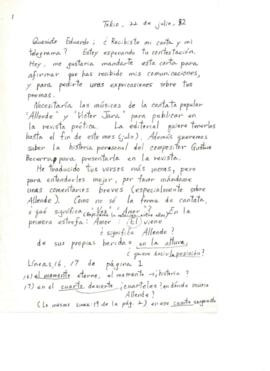 1
Tokio, 22 de julio, 82
Querido Eduardo: ¿Recibiste mi carta y mi
telegrama? Estoy esperando tu contestación.
Hoy, me gustaría mandarte esta carta para
afirmar que has recibido mis comunicaciones,
y para pedirte unas explicaciones sobre tus
poemas.
Necesitaría las músicas de la cantata popular
"Allende" y "Víctor Jara" para publicar en
la revista poética. La editorial quiere tenerlas
hasta el fin de este mes (julio). Además queremos
saber la historia personal del compositor Gustavo
Becerra para presentarla en la revista.
He traducido tus versos más meses, pero
para entenderlos mejor, por favor mándame
unos comentarios breves (especialmente sobre
Allende). Como no sé la forma de cantata,
¿qué significa "Voz" "Amor"? En la
primera estrofa: Amor: (El) viene
¿significa Allende?
de sus propias heridas en la altura,
¿quiere decir la posición?
Líneas 16, 17 de página 1
16) el momento eterno, el momento → ¿historia?
17) en el cuarto desierto ¿cuarteles? ¿en dónde murió
Allende?
(Lo mismo línea 19 de la pág. 2) en ese cuarto